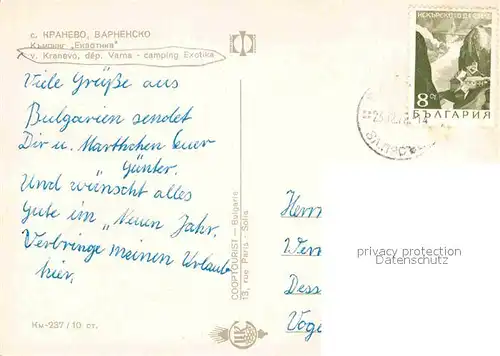 с. КРАНЕВО, ВАРНЕНСКО
Къмпинг „Екзотика"
v. Kranevo, dép. Varna - camping Exotika
Viele Grüße aus
Bulgarien sendet
Dir u. Marthchen Euer
Günter.
Und wünscht alles
Gute im „Neuen Jahr.
Verbringe meinen Urlaub
hier.
Км-237/10 ст.
COOPTOURIST — Bulgarie
13, rue Paris - Sofia
8 ст
БЪЛГАРИЯ
ЗЛ. ПЯСЪ
Herrn
Wern
Dess
Voge
privacy protection
Datenschutz